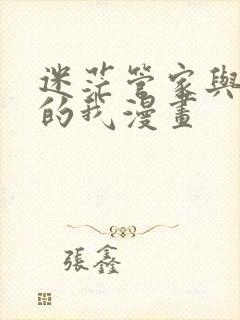 迷茫管家與
的我漫畫
張鑫